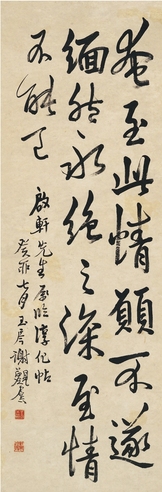 奄至此情願不遂
緬然永絕之深至情
不能已
啟軒先生屬臨淳化帖
癸亥七月玉岑謝覲虞